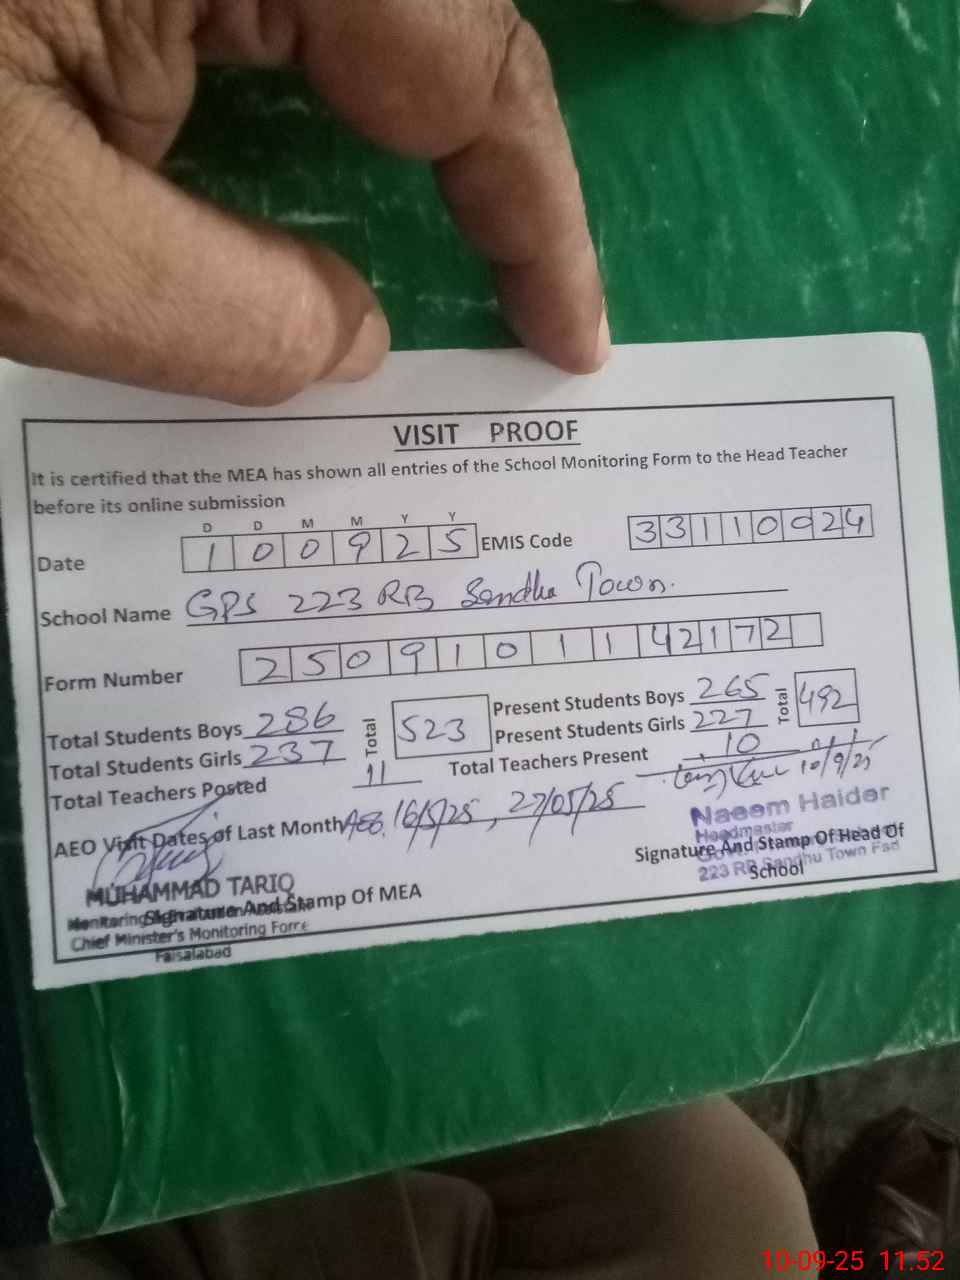 VISIT PROOF
It is certified that the MEA has shown all entries of the School Monitoring Form to the Head Teacher
before its online submission
D D M M Y Y
Date 1 0 0 9 2 5 EMIS Code 3 3 1 1 0 0 2 4
School Name GPS 223 RB Sandhu Town.
Form Number 2 5 0 9 1 0 1 1 4 2 1 7 2
Total Students Boys 286 Total 523 Present Students Boys 265 Total 492
Total Students Girls 237 Present Students Girls 227
Total Teachers Posted 11 Total Teachers Present 10
10/9/25
AEO Visit Dates of Last Month AEO. 16/5/25, 27/05/25
Naeem Haider
Headmaster
Signature And Stamp Of Head Of
School
223 RB Sandhu Town Fsd
MUHAMMAD TARIQ
Signature And Stamp Of MEA
Chief Minister's Monitoring Force
Faisalabad
10-09-25 11.52